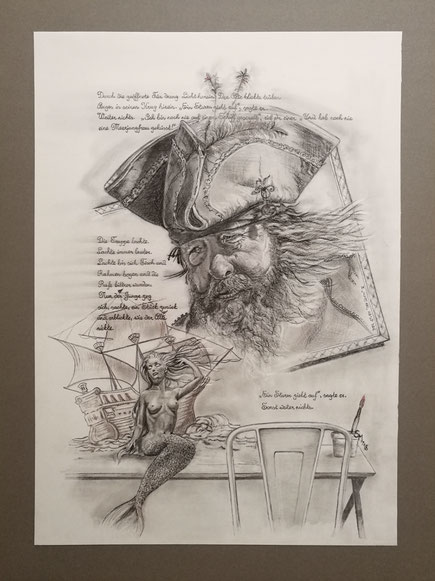 Durch die geöffnete Tür drang Licht herein. Der Alte blickte trüben
Auges in seinen Krug hinein. „Ein Sturm zieht auf", sagte er.
Weiter nichts. „Ich bin noch nie auf einem Schiff gewesen", rief ein einer. „Und hab noch nie
eine Meerjungfrau gehabt!"
Die Truppe lachte.
Lachte immer lauter.
Lachte bis sich Tisch und
Rahmen bogen und die
Rufe bitter wurden.
Nur der Junge zog
sich, sachte, ein Stück zurück
und erblickte, wie der Alte
nickte.
„Ein Sturm zieht auf", sagte er.
Sonst weiter nichts.